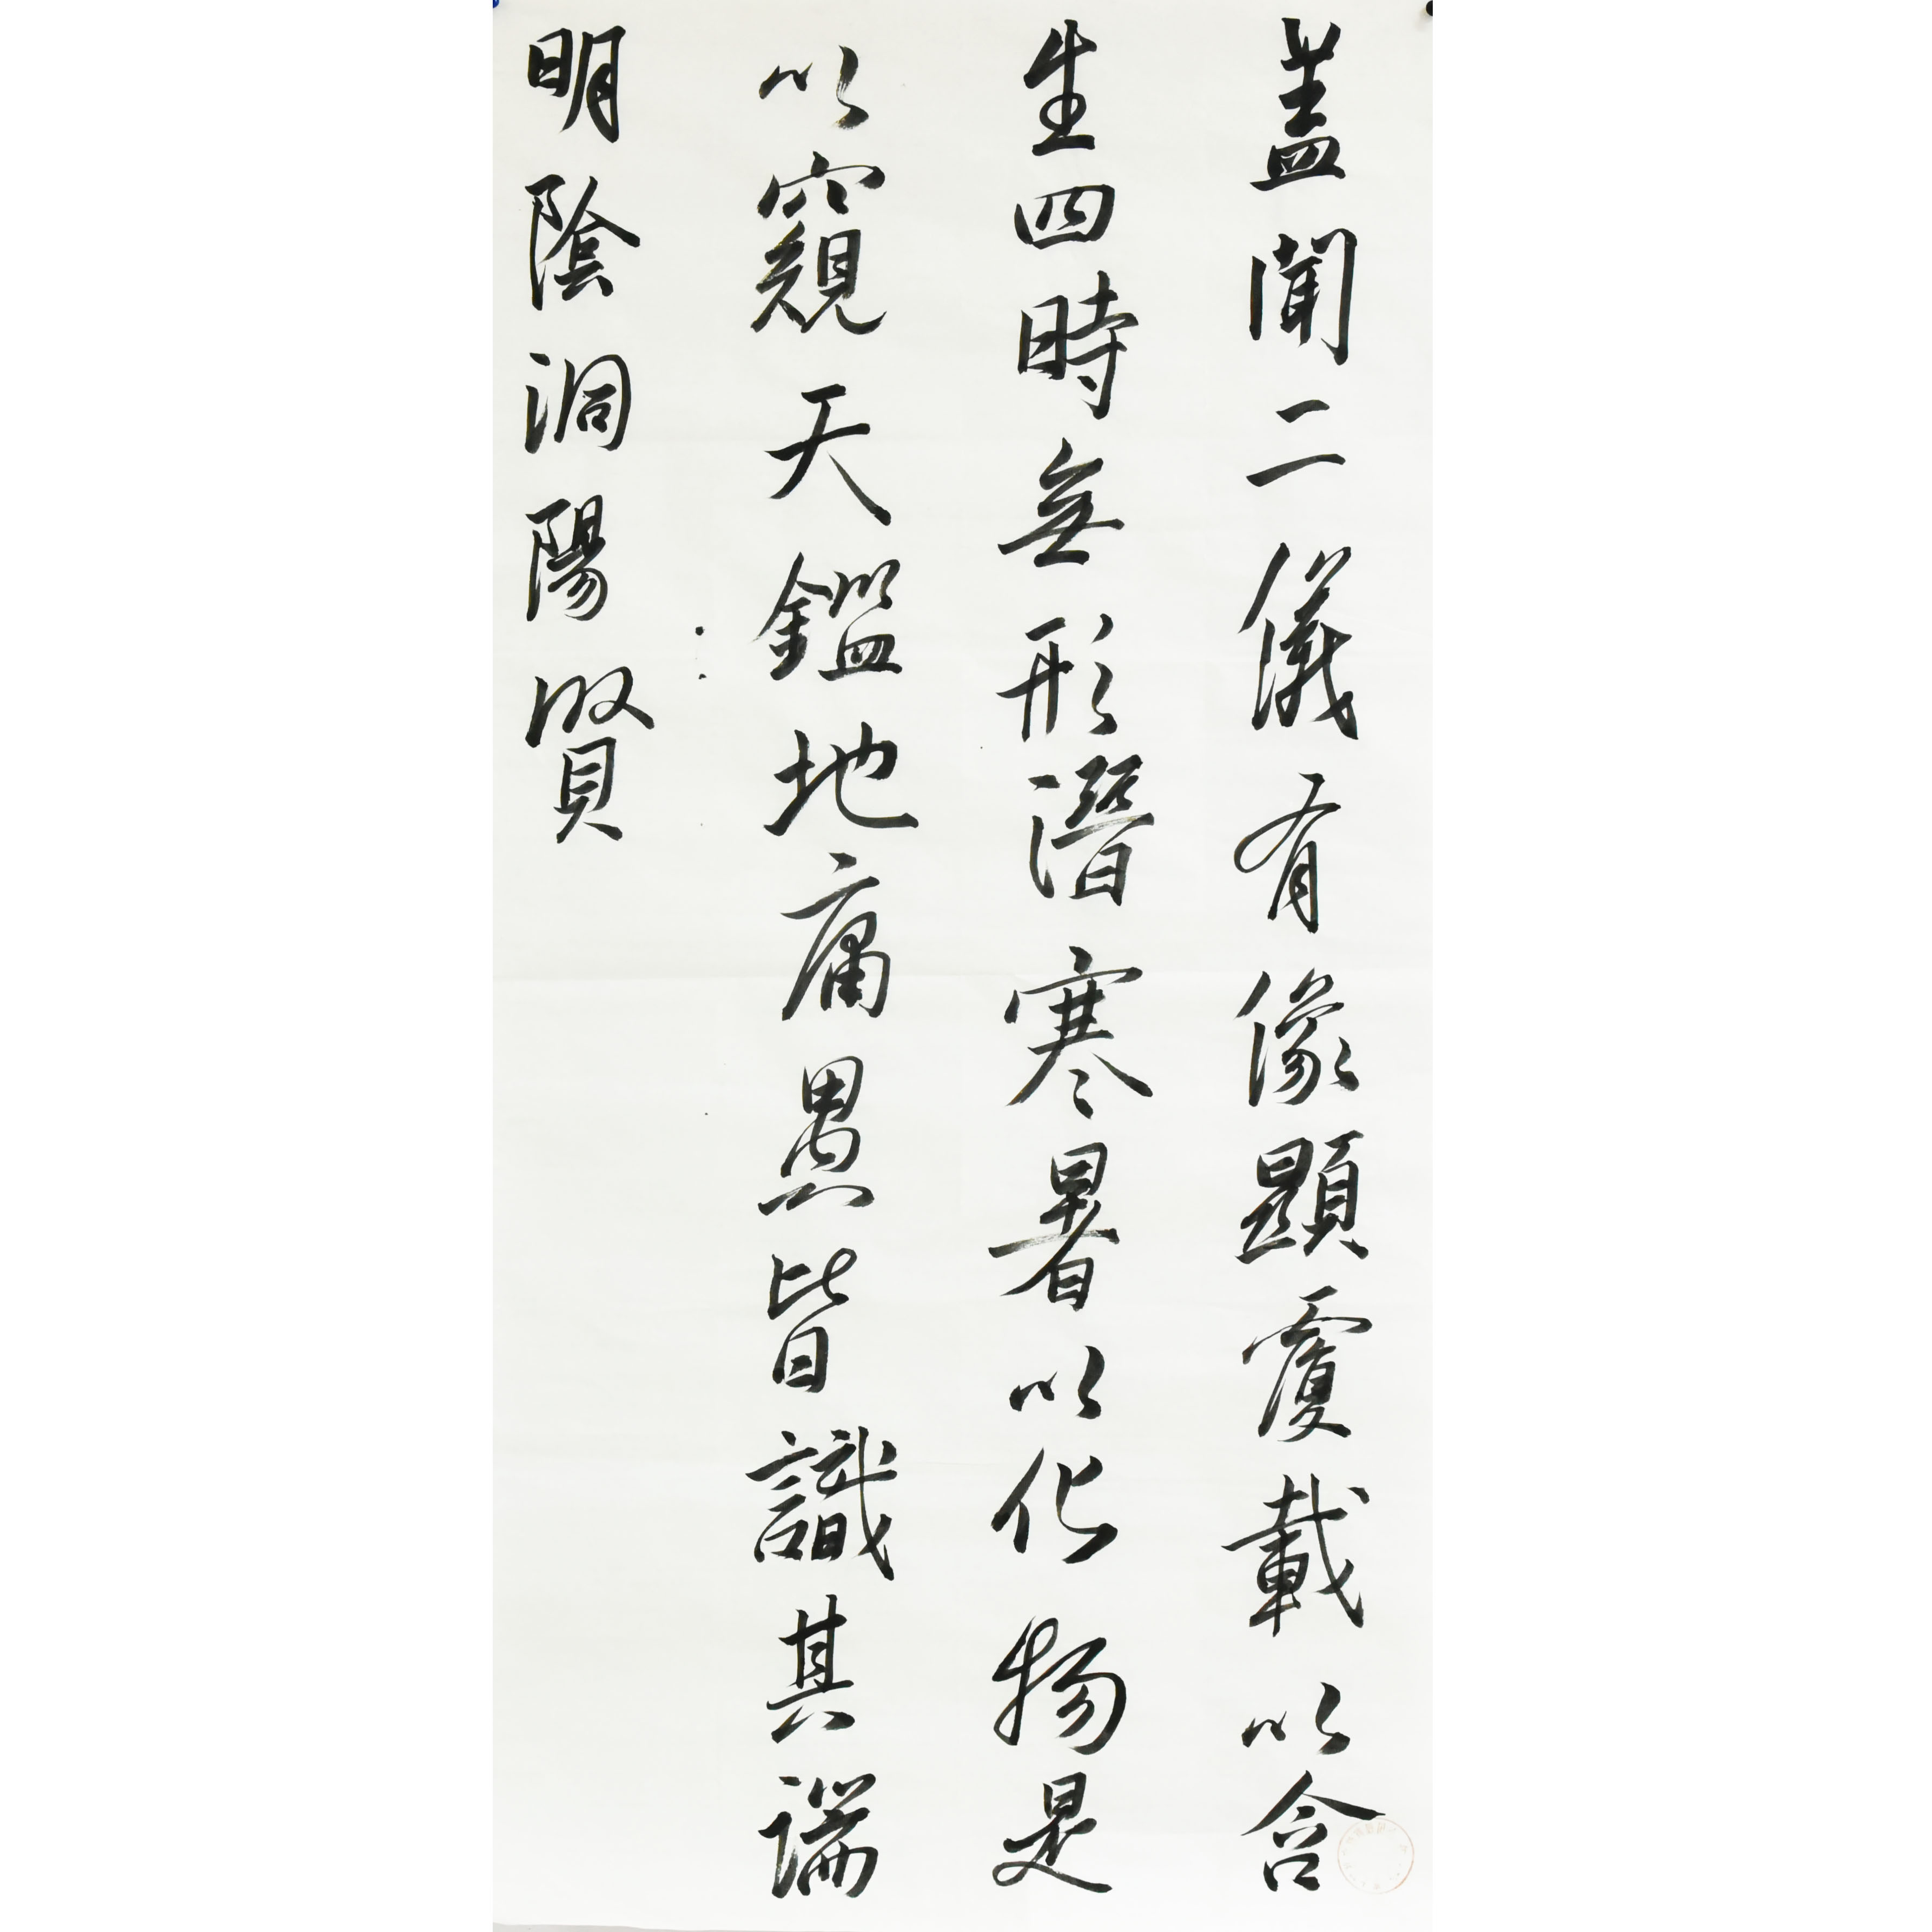 蓋聞二儀有像顯覆載以含
生四時無形潛寒暑以化物是
以窺天鑑地庸愚皆識其端
明陰洞陽賢